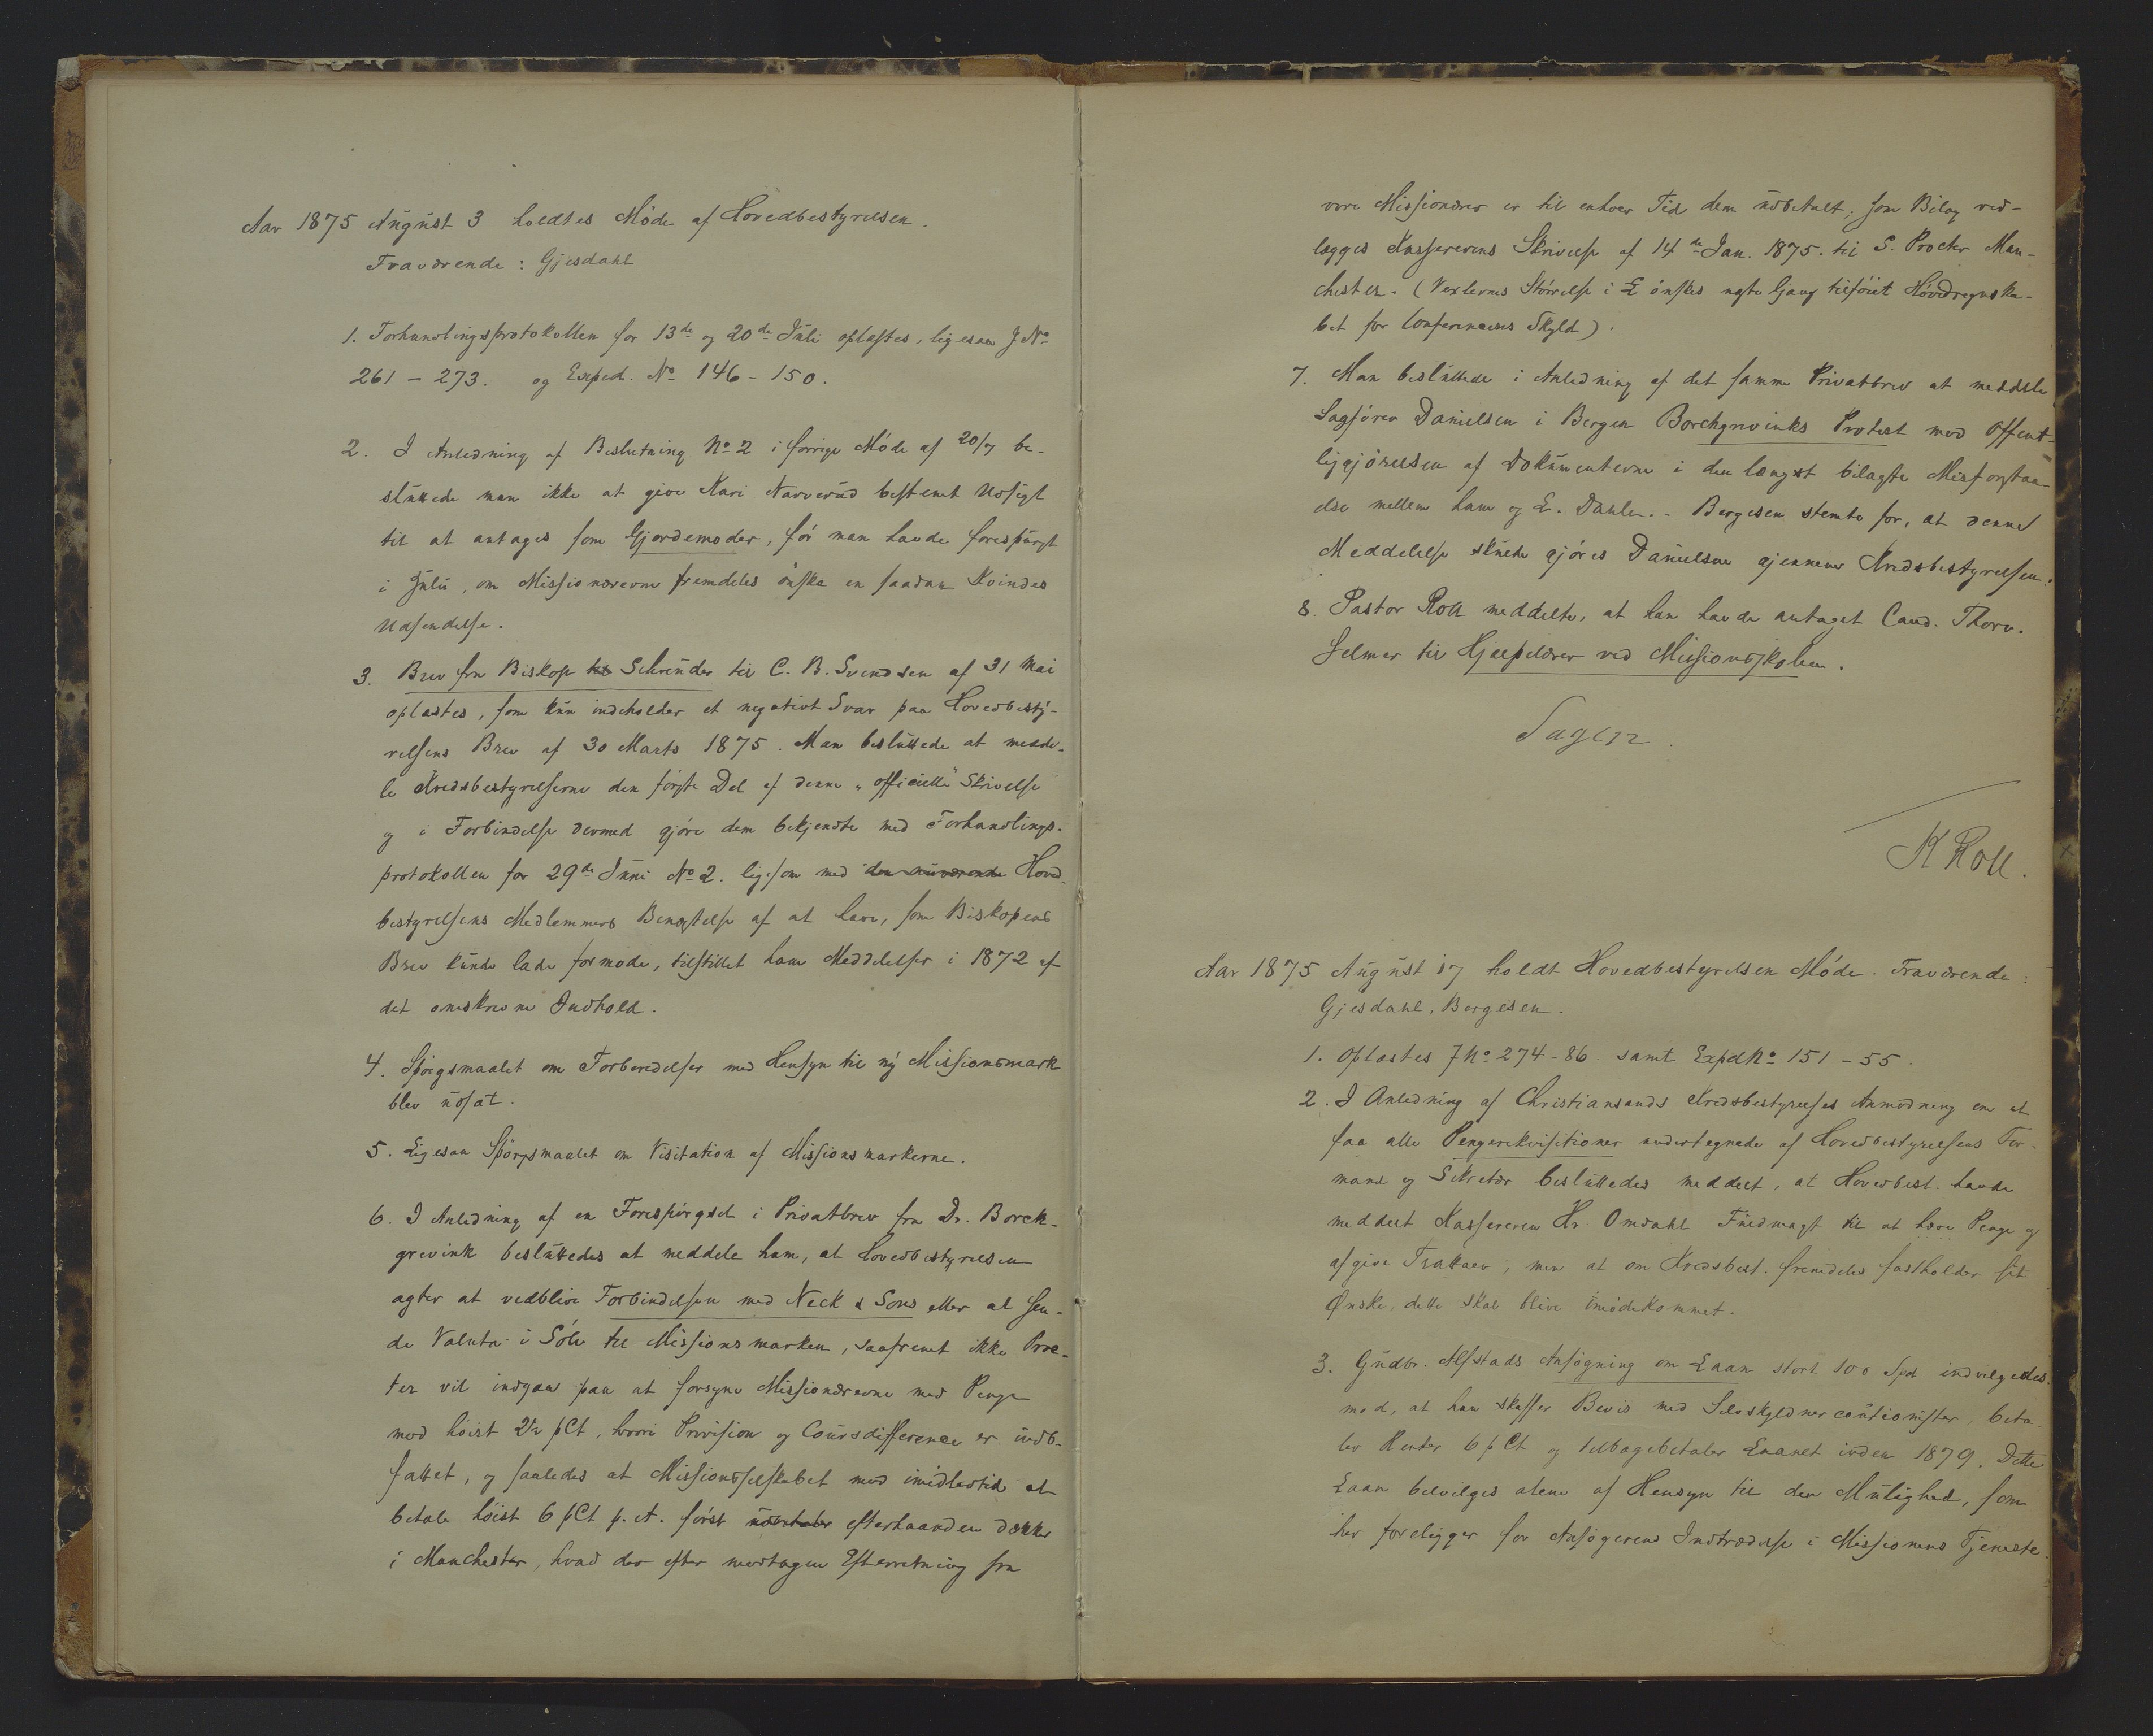 Aar 1875 August 3 holdtes Møde af Hovedbestyrelsen.
Fraværende: Gjesdahl
1. Forhandlingsprotokollen for 13de og 20de Juli oplæstes, ligesaa J No
261 - 273. og Exped. No 146 - 150.
2. I Anledning af Beslutning No 2 i forrige Møde af 20/7 be-
sluttede man ikke at give Kari Narverud bestemt Udsigt
til at antages som Gjordemoder, før man havde forespurgt
i Zulu, om Missionærerne fremdeles ønske en saadan Kvindes
Udsendelse.
3. Brev fra Biskop til Schreuder til C. B. Svendsen af 31 Mai
oplæstes, som kun indeholder et negativt Svar paa Hovedbesty-
relsens Brev af 30 Marts 1875. Man besluttede at medde-
le Kredsbestyrelserne den første Del af denne "officielle" Skrivelse
og i Forbindelse dermed gjøre dem bekjendte med Forhandlings-
protokollen for 29de Juni No 2. ligesom med den nuværende Hoved-
bestyrelsens Medlemmers Benægtelse af at have, som Biskopens
Brev kunde lade formode, tilstillet ham Meddelelser i 1872 af
det omskrevne Indhold.
4. Spørgsmaalet om Forberedelser med Hensyn til ny Missionsmark
blev udsat.
5. Ligesaa Spørgsmaalet om Visitation af Missionsmarkerne.
6. I Anledning af en Forespørgsel i Privatbrev fra Dr. Borch-
grevink besluttedes at meddele ham, at Hovedbestyrelsen
agter at vedblive Forbindelsen med Neck & Sons eller at sen-
de Valuta i Sølv til Missionsmarken, saafremt ikke Proc-
ter vil indgaa paa at forsyne Missionærerne med Penge
mod høist 2½ pCt, hvori Provision og Coursdifference er indb-
fattet, og saaledes at Missionsselskabet mod imidlertid at
betale høist 6 pCt p. A. først udbetaler efterhaanden dækker
i Manchester, hvad der efter modtagen Efterretning fra
vore Missionærer er til enhver Tid dem udbetalt; som Bilag ved-
lægges Kassererens Skrivelse af 14de Jan. 1875. til S. Procter Man-
chester. (Vexlernes Størrelse i £ ønskes nogte Gang tilføiet Hovedregnska-
bet for Conferencens Skyld).
7. Man besluttede i Anledning af det samme Privatbrev at meddele
Sagfører Danielsen i Bergen Borchgrevinks Protest mod Offent-
liggjørelsen af Dokumenterne i den længst bilagte Misforstaa-
else mellem ham og L. Dahle. - Bergesen stemte for, at denne
Meddelelse skulde gjøres Danielsen gjennem Kredsbestyrelsen.
8. Pastor Roll meddelte, at han havde antaget Cand. Thorv.
Selmer til Hjælpelærer ved Missionsskolen.
Sagen.
K Roll.
Aar 1875 August 17 holdt Hovedbestyrelsen Møde. Fraværende:
Gjesdahl, Bergesen.
1. Oplæstes J No 274 - 86. samt Exped No 151 - 55.
2. I Anledning af Christiansands Kredsbestyrelses Anmodning om at
faa alle Pengerekvisitioner undertegnede af Hovedbestyrelsens For-
mand og Sekretær besluttedes meddelt, at Hovedbest. havde
meddelt Kassereren Hr. Omdahl Fuldmagt til at hæve Penge og
afgive Trattaer, men at om Kredsbest. fremdeles fastholder sit
Ønske, dette skal blive imødekommet.
3. Gudbr. Alfstads Ansøgning om Laan stort 100 Spd. indvilgedes.
mod, at han skaffer Bevis med Selvskyldnercautionister, beta-
ler Renter 6 pCt og tilbagebetaler Laanet inden 1879. Dette
Laan bevilges alene af Hensyn til den Mulighed, som
her foreligger for Ansøgerens Indtrædelse i Missionens Tjeneste.